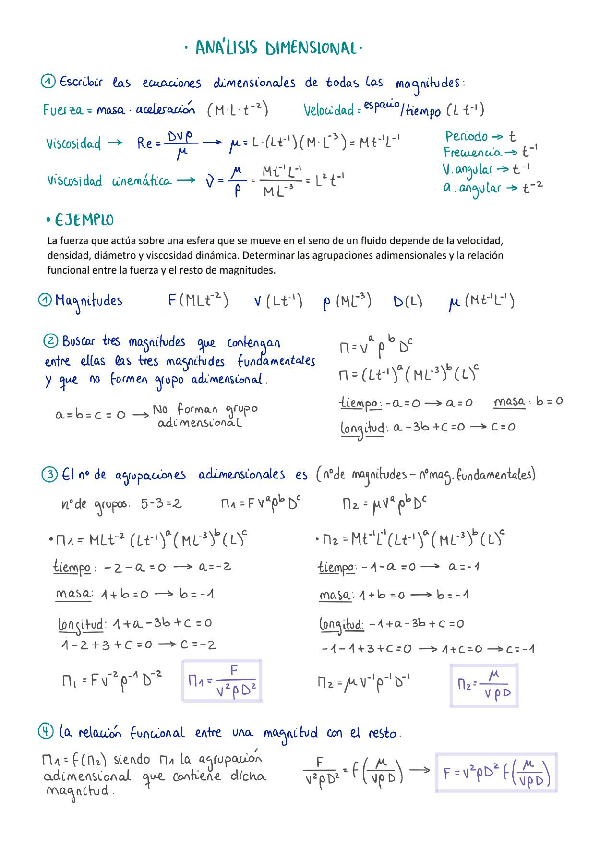 · ANÁLISIS DIMENSIONAL ·
① Escribir las ecuaciones dimensionales de todas las magnitudes:
Fuerza = masa · aceleración (M·L·t⁻²) Velocidad = espacio/tiempo (L t⁻¹)
Viscosidad → Re = DVρ/μ → μ = L·(Lt⁻¹)(M·L⁻³) = Mt⁻¹L⁻¹
Viscosidad cinemática → ν̇ = μ/ρ = Mt⁻¹L⁻¹/ML⁻³ = L² t⁻¹
Periodo → t
Frecuencia → t⁻¹
V. angular → t⁻¹
a. angular → t⁻²
• EJEMPLO
La fuerza que actúa sobre una esfera que se mueve en el seno de un fluido depende de la velocidad,
densidad, diámetro y viscosidad dinámica. Determinar las agrupaciones adimensionales y la relación
funcional entre la fuerza y el resto de magnitudes.
① Magnitudes F(MLt⁻²) V(Lt⁻¹) ρ(ML⁻³) D(L) μ(Mt⁻¹L⁻¹)
② Buscar tres magnitudes que contengan
entre ellas las tres magnitudes fundamentales
y que no formen grupo adimensional.
a=b=c=0 → No forman grupo
adimensional
Π = vᵃ ρᵇ Dᶜ
Π = (Lt⁻¹)ᵃ (ML⁻³)ᵇ (L)ᶜ
tiempo: -a=0 → a=0 masa: b=0
longitud: a-3b+c=0 → c=0
③ El nº de agrupaciones adimensionales es (nº de magnitudes - nº mag. fundamentales)
nº de grupos: 5-3=2 Π1 = F vᵃρᵇDᶜ Π2 = μvᵃρᵇDᶜ
• Π1 = MLt⁻² (Lt⁻¹)ᵃ(ML⁻³)ᵇ(L)ᶜ
tiempo: -2-a=0 → a=-2
masa: 1+b=0 → b=-1
longitud: 1+a-3b+c=0
1-2+3+c=0 → c=-2
Π1 = Fv⁻²ρ⁻¹D⁻² Π1 = F/v²ρD²
• Π2 = Mt⁻¹L⁻¹(Lt⁻¹)ᵃ(ML⁻³)ᵇ(L)ᶜ
tiempo: -1-a=0 → a=-1
masa: 1+b=0 → b=-1
longitud: -1+a-3b+c=0
-1-1+3+c=0 → 1+c=0 → c=-1
Π2 = μv⁻¹ρ⁻¹D⁻¹ Π2 = μ/vρD
④ La relación funcional entre una magnitud con el resto.
Π1 = f(Π2) siendo Π1 la agrupación
adimensional que contiene dicha
magnitud.
F/v²ρD² = f(μ/vρD) → F = v²ρD² f(μ/vρD)